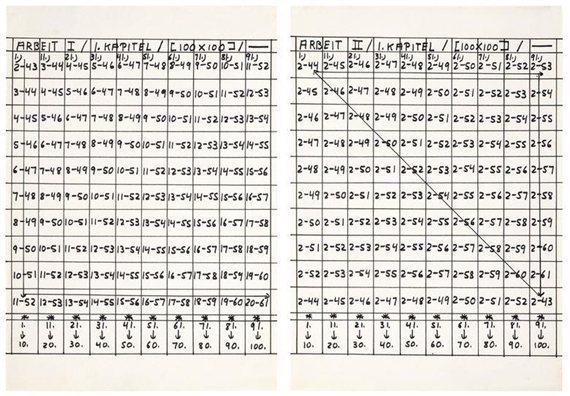 ARBEIT I / 1. KAPITEL / [100X100] / —
1.) 11.) 21.) 31.) 41.) 51.) 61.) 71.) 81.) 91.)
2-43 3-44 4-45 5-46 6-47 7-48 8-49 9-50 10-51 11-52
3-44 4-45 5-46 6-47 7-48 8-49 9-50 10-51 11-52 12-53
4-45 5-46 6-47 7-48 8-49 9-50 10-51 11-52 12-53 13-54
5-46 6-47 7-48 8-49 9-50 10-51 11-52 12-53 13-54 14-55
6-47 7-48 8-49 9-50 10-51 11-52 12-53 13-54 14-55 15-56
7-48 8-49 9-50 10-51 11-52 12-53 13-54 14-55 15-56 16-57
8-49 9-50 10-51 11-52 12-53 13-54 14-55 15-56 16-57 17-58
9-50 10-51 11-52 12-53 13-54 14-55 15-56 16-57 17-58 18-59
10-51 11-52 12-53 13-54 14-55 15-56 16-57 17-58 18-59 19-60
11-52 12-53 13-54 14-55 15-56 16-57 17-58 18-59 19-60 20-61
* * * * * * * * * *
1. 11. 21. 31. 41. 51. 61. 71. 81. 91.
↓ ↓ ↓ ↓ ↓ ↓ ↓ ↓ ↓ ↓
10. 20. 30. 40. 50. 60. 70. 80. 90. 100.
ARBEIT II / 1. KAPITEL / [100X100] / —
1.) 11.) 21.) 31.) 41.) 51.) 61.) 71.) 81.) 91.)
2-44 2-45 2-46 2-47 2-48 2-49 2-50 2-51 2-52 2-53
2-45 2-46 2-47 2-48 2-49 2-50 2-51 2-52 2-53 2-54
2-46 2-47 2-48 2-49 2-50 2-51 2-52 2-53 2-54 2-55
2-47 2-48 2-49 2-50 2-51 2-52 2-53 2-54 2-55 2-56
2-48 2-49 2-50 2-51 2-52 2-53 2-54 2-55 2-56 2-57
2-49 2-50 2-51 2-52 2-53 2-54 2-55 2-56 2-57 2-58
2-50 2-51 2-52 2-53 2-54 2-55 2-56 2-57 2-58 2-59
2-51 2-52 2-53 2-54 2-55 2-56 2-57 2-58 2-59 2-60
2-52 2-53 2-54 2-55 2-56 2-57 2-58 2-59 2-60 2-61
2-44 2-45 2-46 2-47 2-48 2-49 2-50 2-51 2-52 2-43
* * * * * * * * * *
1. 11. 21. 31. 41. 51. 61. 71. 81. 91.
↓ ↓ ↓ ↓ ↓ ↓ ↓ ↓ ↓ ↓
10. 20. 30. 40. 50. 60. 70. 80. 90. 100.